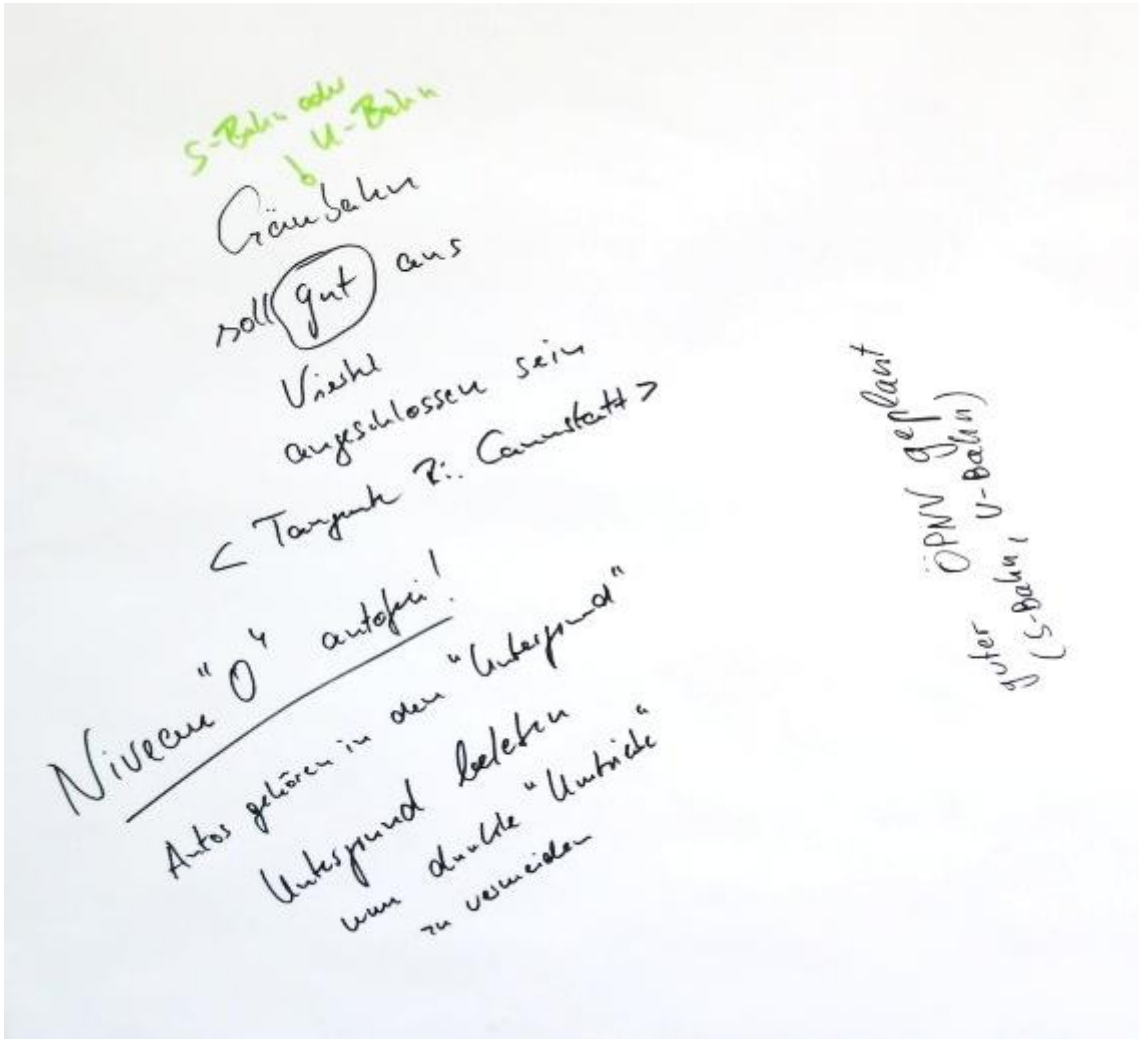 S-Bahn oder
U-Bahn
Gäubahn
soll gut aus
Viertel
angeschlossen sein
< Ri. Cannstatt >
Niveau "0" autofrei!
Autos gehören in den "Untergrund"
Untergrund beleben
um dunkle "Umtriebe"
zu vermeiden
guter ÖPNV geplant
(S-Bahn, U-Bahn)